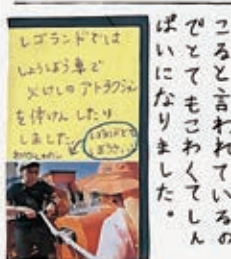 こると言われているの
でとてもこわくてしん
ぱいになりました。
レゴランドでは
しょうぼう車で
火けしのアトラクション
を体けんしたり
しました。